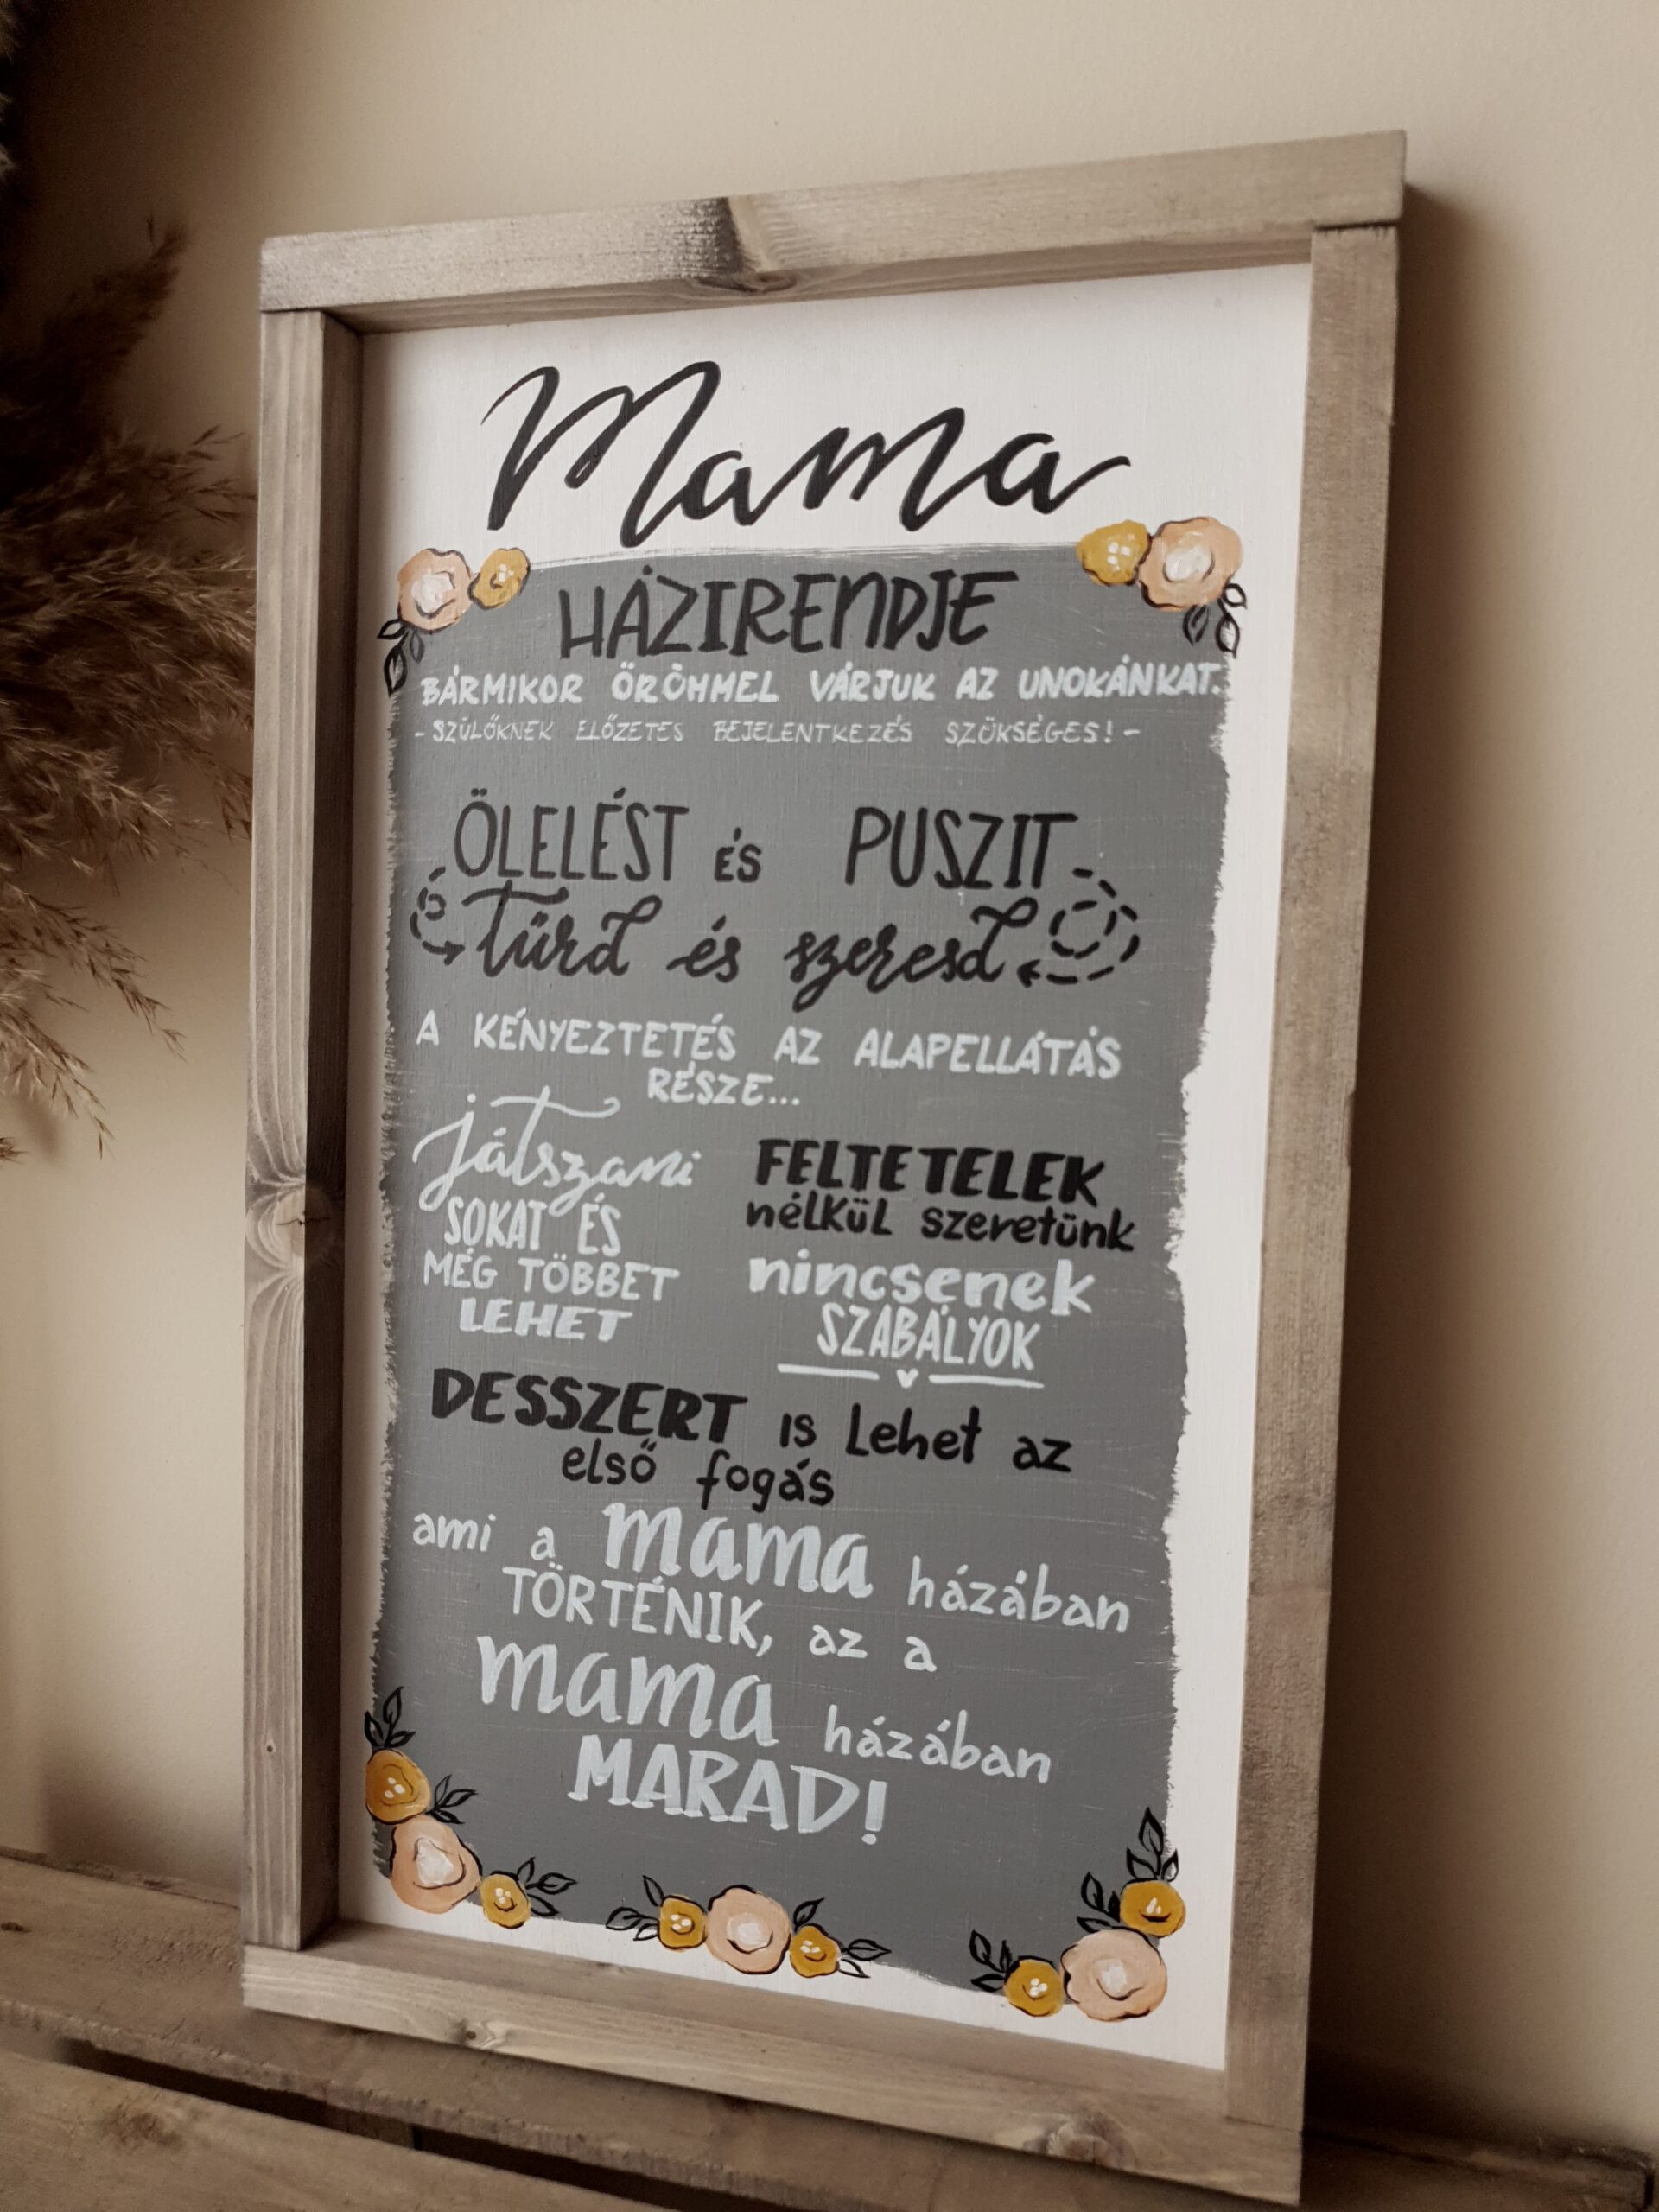 Mama
HÁZIRENDJE
BÁRMIKOR ÖRÖMMEL VÁRJUK AZ UNOKÁNKAT.
- SZÜLŐKNEK ELŐZETES BEJELENTKEZÉS SZÜKSÉGES! -
ÖLELÉST ÉS PUSZIT
tűrd és szeresd
A KÉNYEZTETÉS AZ ALAPELLÁTÁS
RÉSZE...
játszani
SOKAT ÉS
MÉG TÖBBET
LEHET
FELTETELEK
nélkül szeretünk
nincsenek
SZABÁLYOK
DESSZERT is lehet az
első fogás
ami a mama házában
TÖRTÉNIK, az a
mama házában
MARAD!